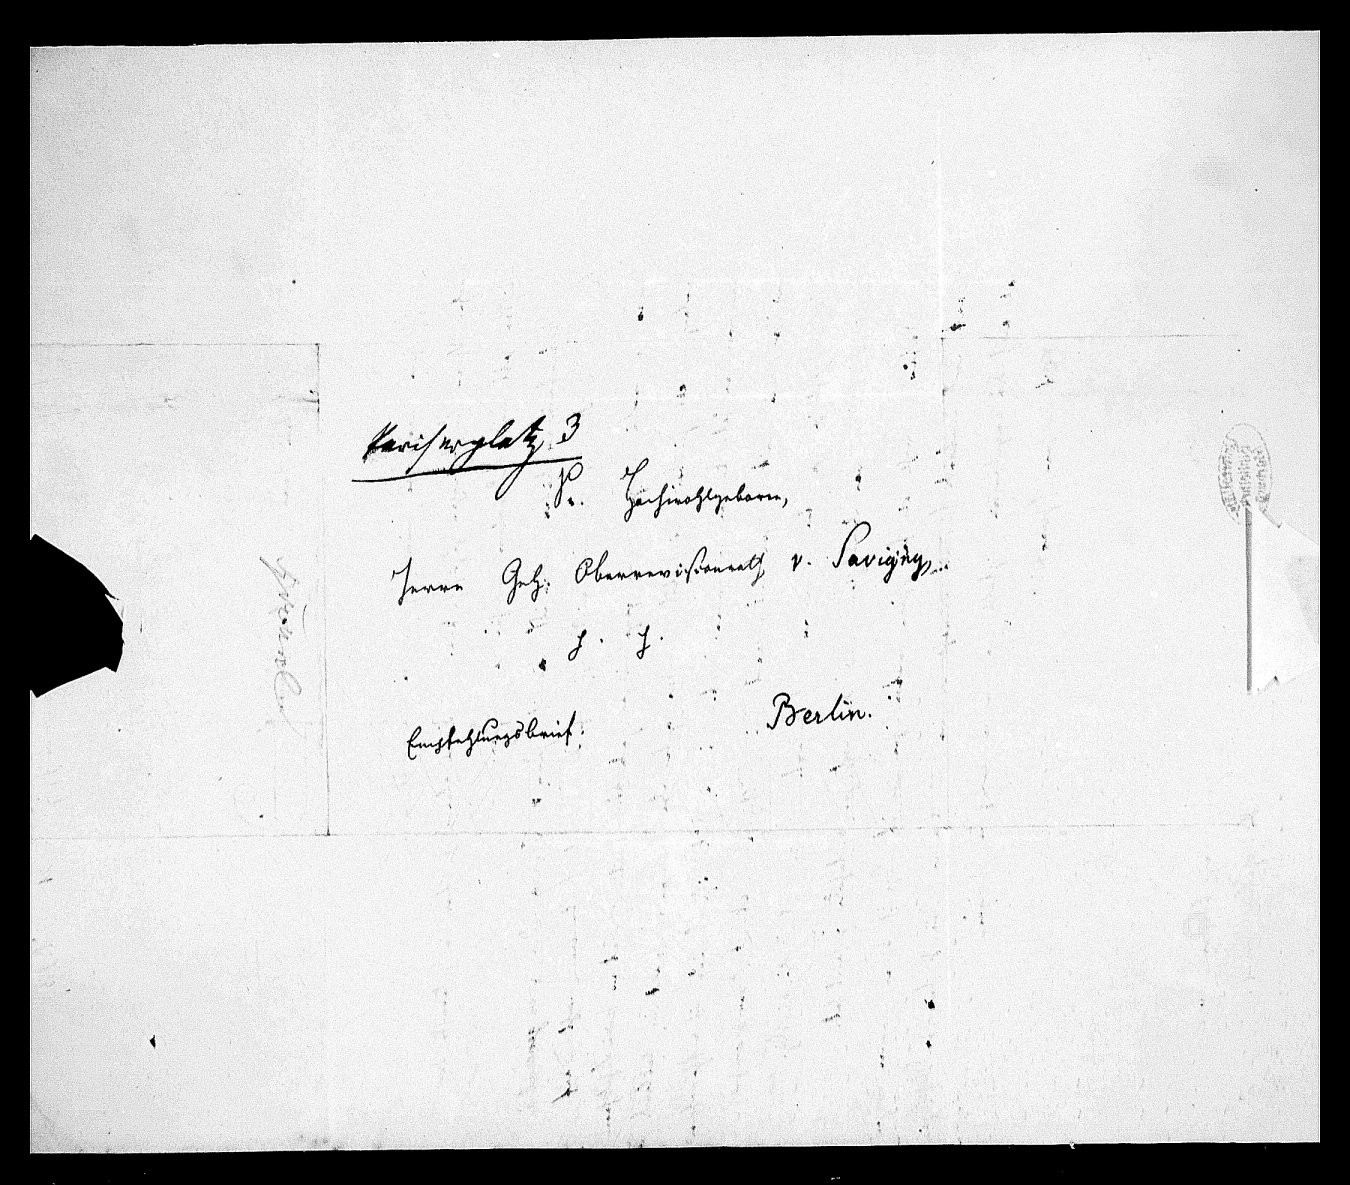 Pariserplatz 3
Sr. Hochwohlgeboren,
Herrn Geh. Oberrevisionsrath v. Savigny,
p. p.
Berlin.
Empfehlungsbrief.